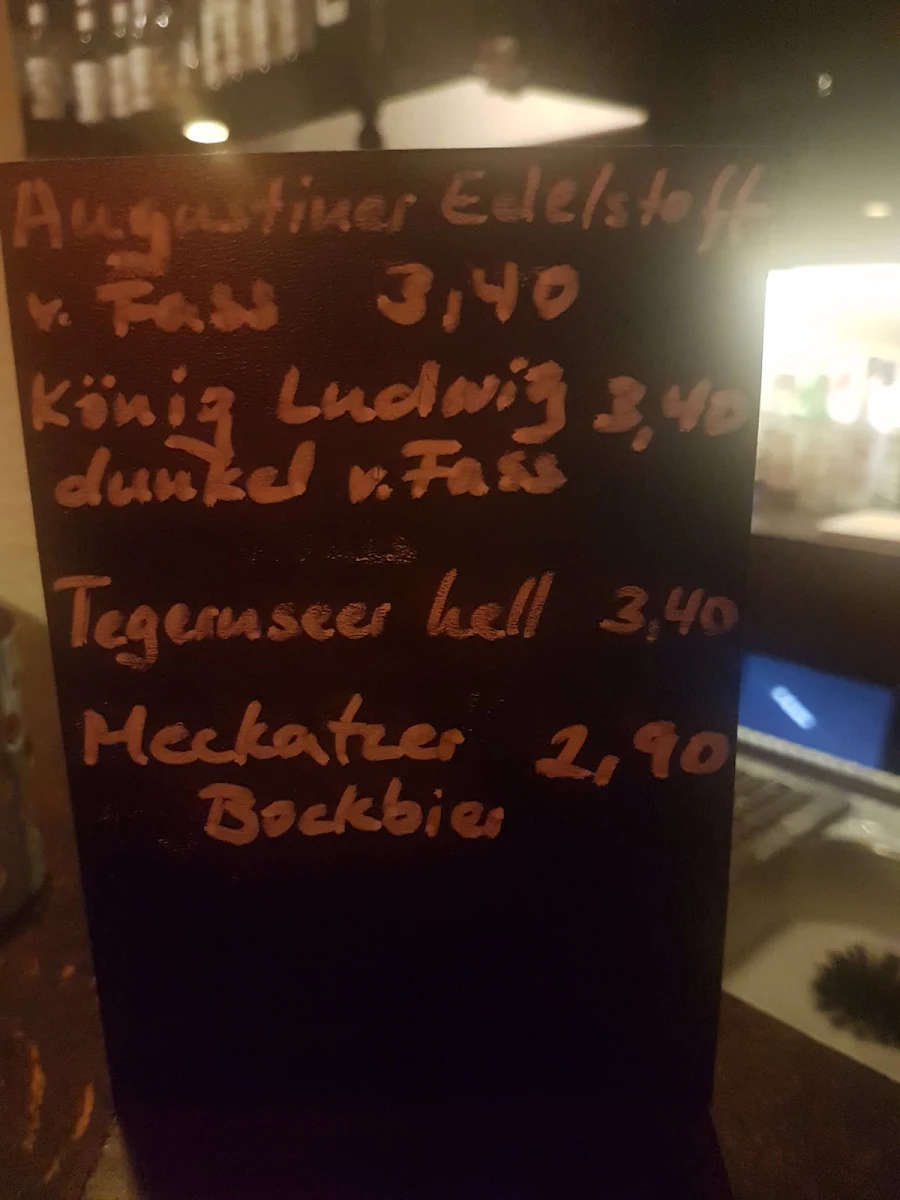 Augustiner Edelstoff
v. Fass 3,40
König Ludwig 3,40
dunkel v. Fass
Tegernseer hell 3,40
Meckatzer 2,90
Bockbier